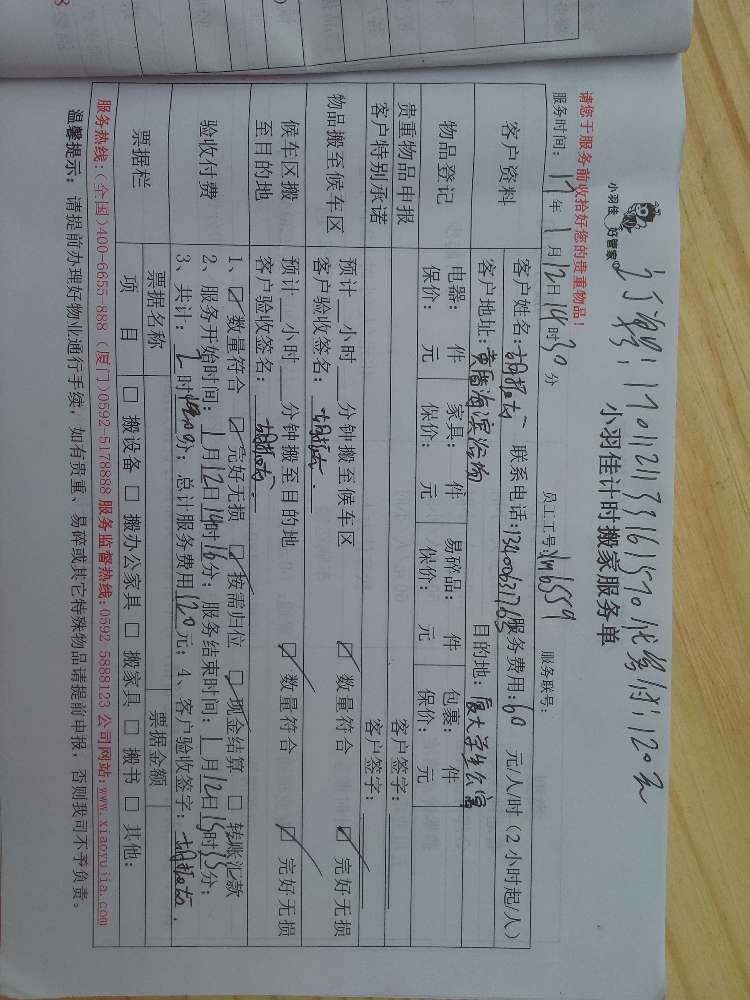 订单号:17011211331615170代发付:120元
小羽佳 好管家
小羽佳计时搬家服务单
请您于服务前收拾好您的贵重物品!
服务时间: 17年 1月12日14时30分 员工工号: 服务联号:
客户资料
客户姓名: 联系电话:13400631763 服务费用:60 元/人/时(2小时起/人)
客户地址: 目的地:厦大学生公寓
物品登记
电器: 件 家具: 件 易碎品: 件 包裹: 件
保价: 元 保价: 元 保价: 元 保价: 元
贵重物品申报 客户签字:
客户特别承诺 客户签字:
物品搬至候车区
预计__小时__分钟搬至候车区 ☑ 数量符合 ☑ 完好无损
客户验收签名:
候车区搬至目的地
预计__小时__分钟搬至目的地 ☑ 数量符合 ☑ 完好无损
客户验收签名:
验收付费
1、☑ 数量符合 ☑ 完好无损 ☑ 按需归位 ☑ 现金结算 □ 转账汇款
2、服务开始时间:1月12日14时16分;服务结束时间:1月12日15时35分;
3、共计:2时分;总计服务费用120元;4、客户验收签字:
票据栏 票据名称 票据金额
项 目 □ 搬设备 □ 搬办公家具 □ 搬家具 □ 搬书 □ 其他:
服务热线:(全国)400-6655-888 (厦门)0592-5178888 服务监督热线:0592 5888123 公司网站:www.xiaoyujia.com
温馨提示:请提前办理好物业通行手续,如有贵重、易碎或其它特殊物品请提前申报,否则我司不予负责。